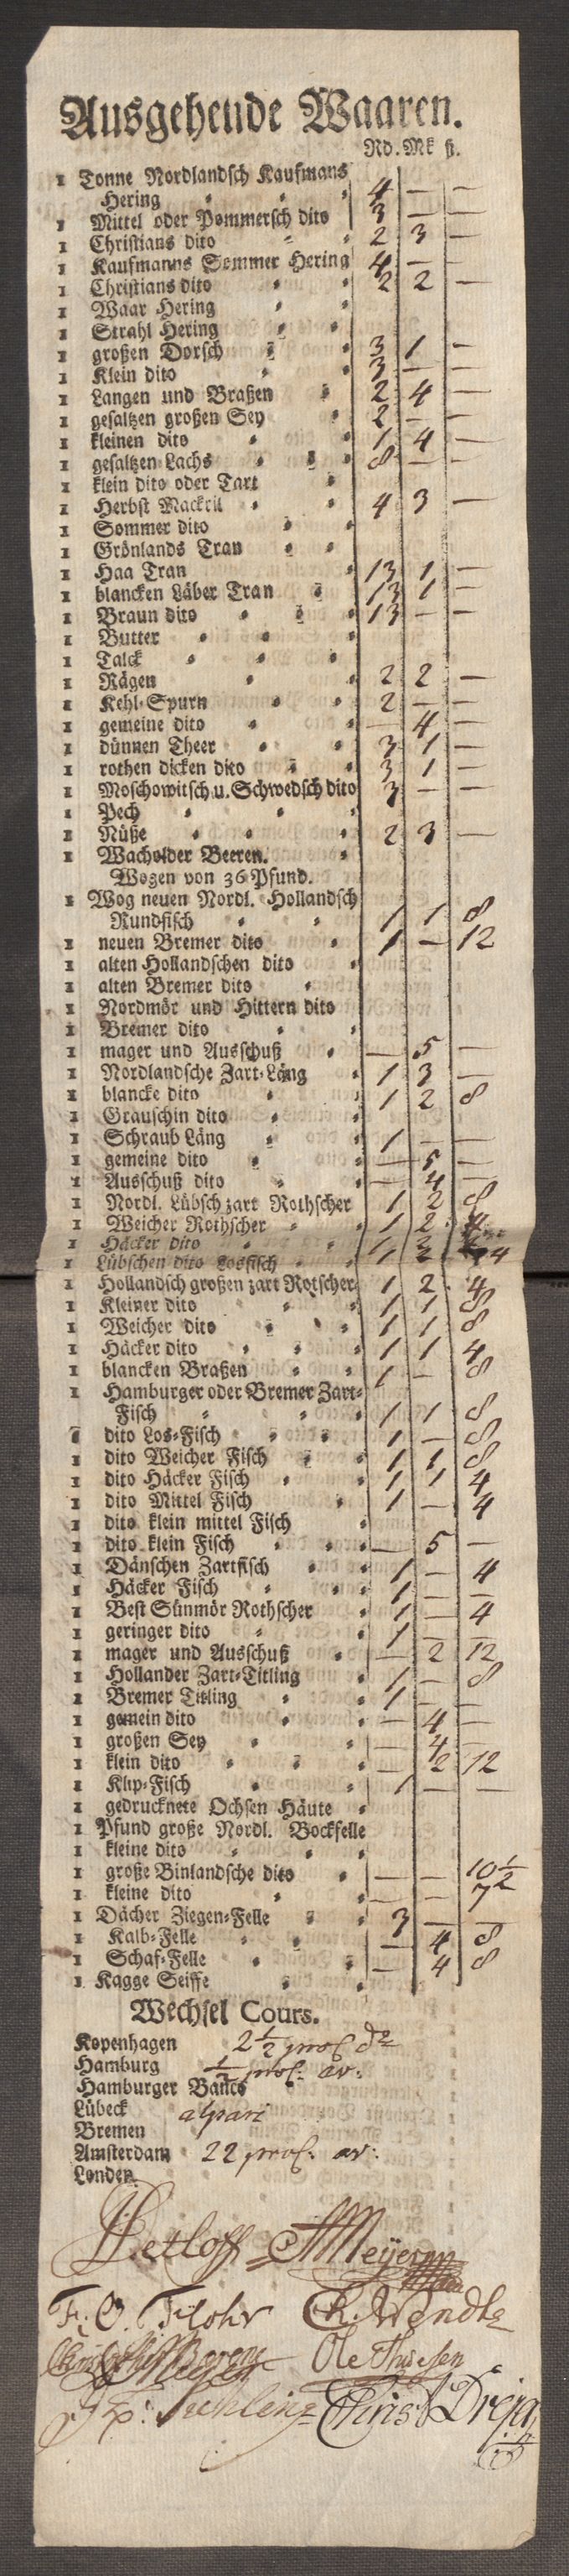 Ausgehende Waaren.
Rd. Mk ß.
1 Tonne Nordlandsch Kaufmans
Hering 4 — —
1 Mittel oder Pommersch dito 3 — —
1 Christians dito 2 3 —
1 Kaufmanns Sommer Hering 4 —
1 Christians dito 2 2 —
1 Waar Hering
1 Strahl Hering
1 großen Dorsch 3 1 —
1 Klein dito 3 — —
1 Langen und Braßen 2 4 —
1 gesaltzen großen Sey 2 — —
1 kleinen dito 1 4 —
1 gesaltzen Lachs 8 — —
1 klein dito oder Tart
1 Herbst Mackril 4 3 —
1 Sommer dito
1 Grönlands Tran
1 Haa Tran 13 1 —
1 blancken Läber Tran 13 1 —
1 Braun dito 13 — —
1 Butter
1 Talck
1 Rägen 2 2 —
1 Kehl-Spurn 2 — —
1 gemeine dito — 4 —
1 dünnen Theer 3 1 —
1 rothen dicken dito 3 1 —
1 Moschowitsch u. Schwedsch dito 3 — —
1 Pech
1 Nüße 2 3 —
1 Wacholder Beeren.
Wogen von 36 Pfund.
1 Wog neuen Nordl. Hollandsch
Rundfisch 1 1 8
1 neuen Bremer dito 1 — 12
1 alten Hollandschen dito
1 alten Bremer dito
1 Nordmör und Hittern dito
1 Bremer dito
1 mager und Ausschuß — 5 —
1 Nordlandsche Zart-Läng 1 3 —
1 blancke dito 1 2 8
1 Grauschin dito
1 Schraub Läng 1 — —
1 gemeine dito — 5 —
1 Ausschuß dito — 4 —
1 Nordl. Lübsch zart Rothscher 1 2 8
1 Weicher Rothscher 1 2 4
1 Häcker dito 1 2
1 Lübschen dito Losfisch 1 2 4
1 Hollandsch großen zart Rotscher 1 2 4
1 Kleiner dito 1 1 8
1 Weicher dito 1 1 8
1 Häcker dito 1 1 4
1 blancken Braßen 1 — 8
1 Hamburger oder Bremer Zart-
Fisch 1 1 8
1 dito Los-Fisch 1 — 8
1 dito Weicher Fisch 1 1 8
1 dito Häcker Fisch 1 1 4
1 dito Mittel Fisch 1 — 4
1 dito klein mittel Fisch
1 dito klein Fisch — 5 —
1 Dänschen Zartfisch 1 — 4
1 Häcker Fisch 1 — —
1 Best Sünmör Rothscher 1 — 4
1 geringer dito 1 — —
1 mager und Ausschuß — 2 12
1 Hollander Zart-Titling 1 — 8
1 Bremer Titling 1 — —
1 gemein dito — 4 —
1 großen Sey — 4 —
1 klein dito — 2 12
1 Klip-Fisch 1 — —
1 gedrucknete Ochsen Häute
1 Pfund große Nordl. Bockfelle
1 kleine dito
1 große Binlandsche dito — — 10½
1 kleine dito — — 7
1 Dächer Ziegen-Felle 3 — —
1 Kalb-Felle — 4 8
1 Schaf-Felle — 4 8
1 Kagge Seiffe
Wechsel Cours.
Kopenhagen 2½ proC
Hamburg ½ proC. av.
Hamburger Banco
Lübeck alpari
Bremen
Amsterdam 22 proC. av.
Londen
Detloff Meyer
F. O. Flohr Ch. Wendt
Meyer Ole Thuesen
Christ Dreja